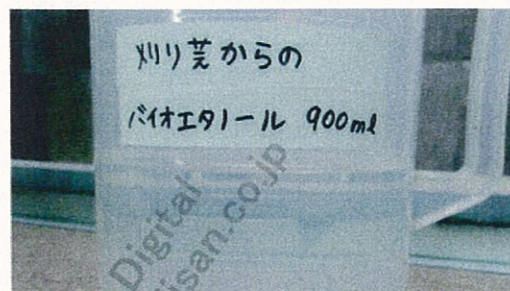 刈り芝からの
バイオエタノール 900ml
Digital
isan.co.jp